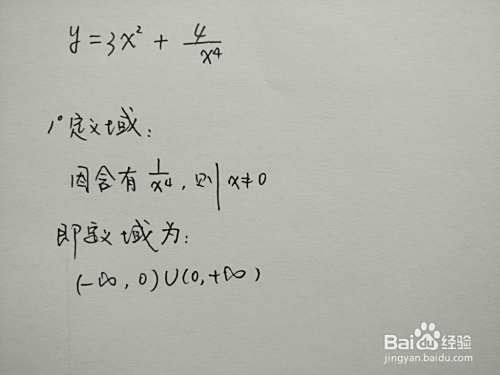 y = 3x² + 4/x⁴
1° 定义域:
因含有 1/x⁴, 则 x≠0
即定义域为:
(-∞, 0)∪(0, +∞)
Bai 经验
jingyan.baidu.com